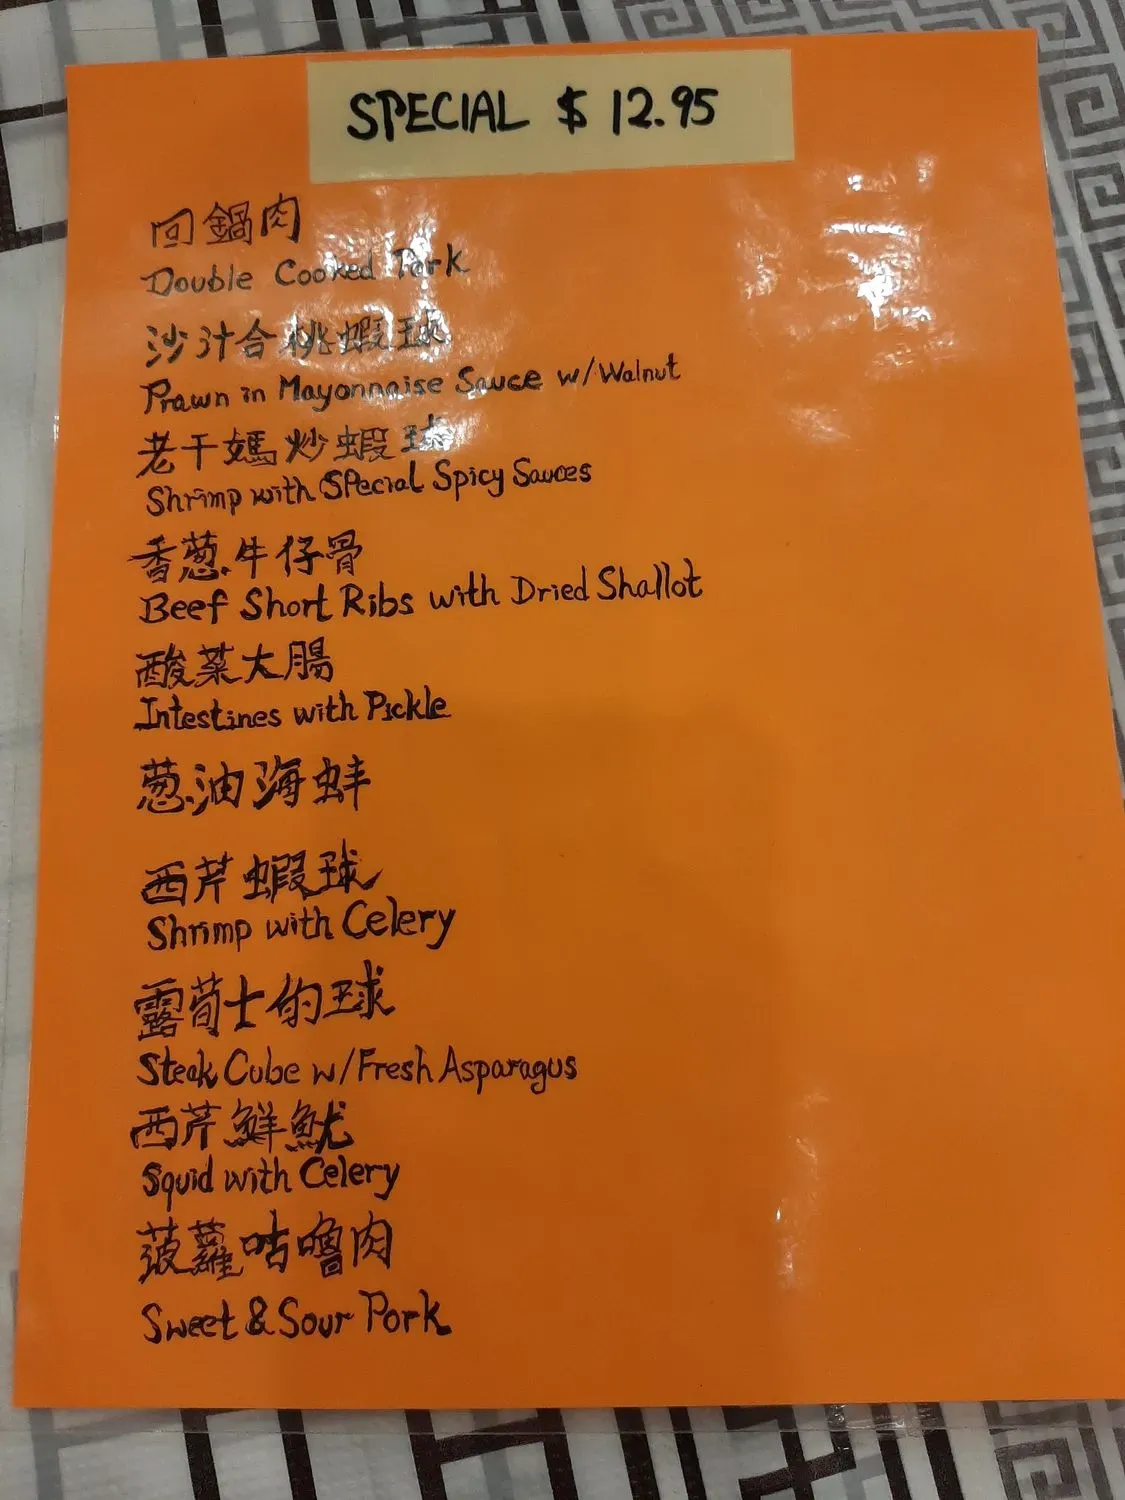 SPECIAL $ 12.95
回鍋肉
Double Cooked Pork
沙汁合桃蝦球
Prawn in Mayonnaise Sauce w/Walnut
老干媽炒蝦球
Shrimp with Special Spicy Sauces
香葱牛仔骨
Beef Short Ribs with Dried Shallot
酸菜大腸
Intestines with Pickle
葱油海蚌
西芹蝦球
Shrimp with Celery
露荀士的球
Steak Cube w/Fresh Asparagus
西芹鮮魷
Squid with Celery
菠蘿咕嚕肉
Sweet & Sour Pork